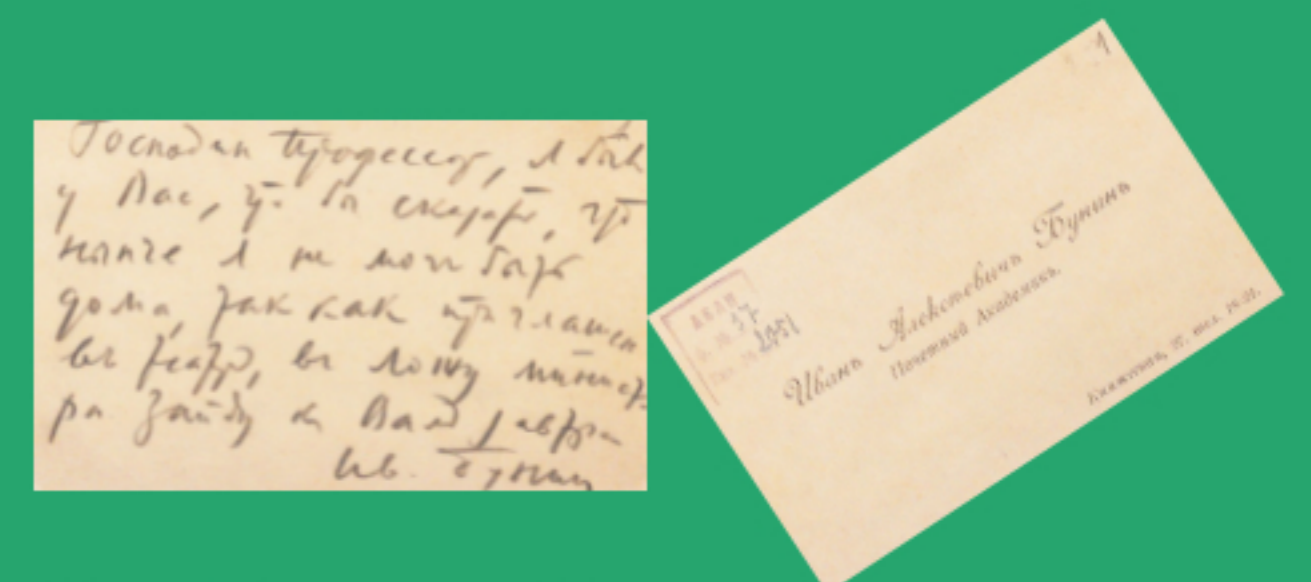 Господин профессор, я былъ
у Вас, что бы сказать, что
нынче я не могу быть
дома, так как приглашен
въ театр, въ ложу министра
ра Зайду к Вам завтра
Ив. Бунин
1
АКАД
37
1951
Иванъ Алексѣевичъ Бунинъ
Почетный Академикъ.
Княжеская, 27. тел.